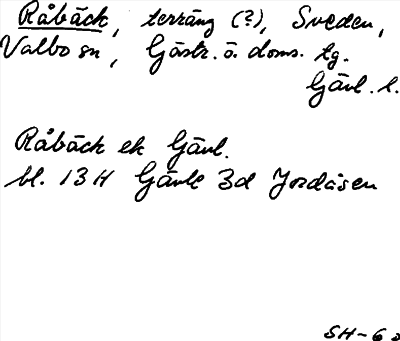 Råbäck, terräng (?), Sweden,
Valbo sn, Gästr. ö. doms. tg.
Gävl. l.
Råbäck ek Gävl.
bl. 13 H Gävle 3d Jordåsen
SH-6